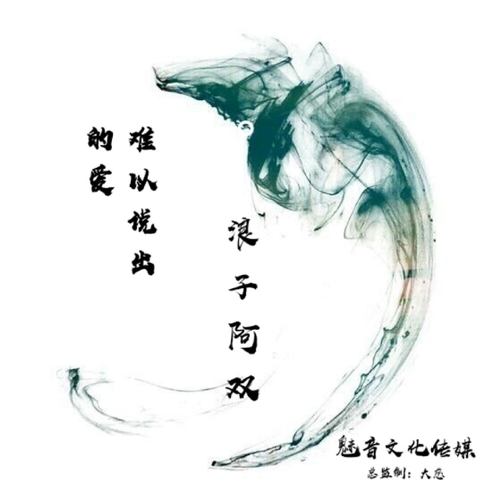 难以说出
的爱
浪子阿双
魅音文化传媒
总监制：大忽